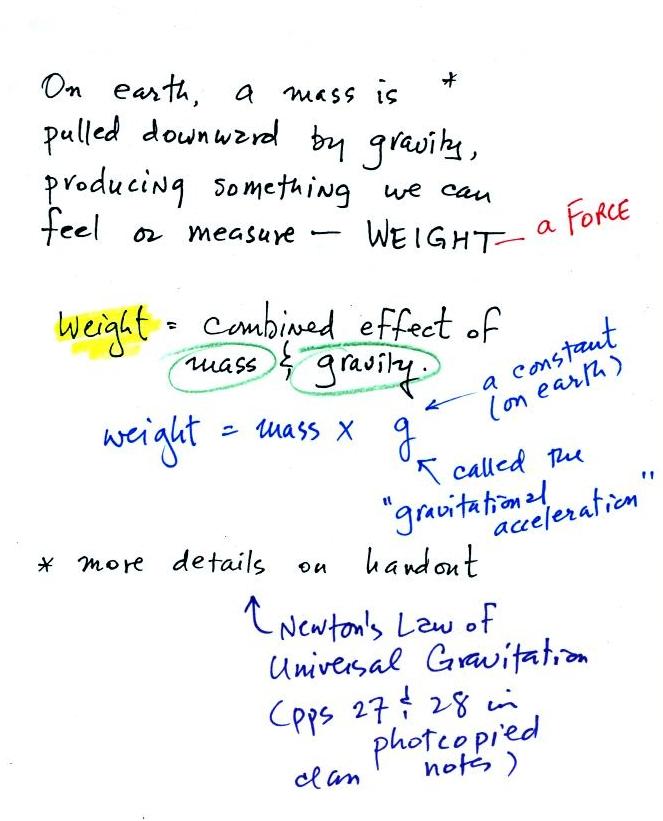 On earth, a mass is *
pulled downward by gravity,
producing something we can
feel or measure — WEIGHT — a FORCE
Weight = combined effect of
mass & gravity.
a constant
(on earth)
weight = mass x g
called the
"gravitational
acceleration"
* more details on handout
Newton's Law of
Universal Gravitation
(pps 27 & 28 in
photcopied
class notes)